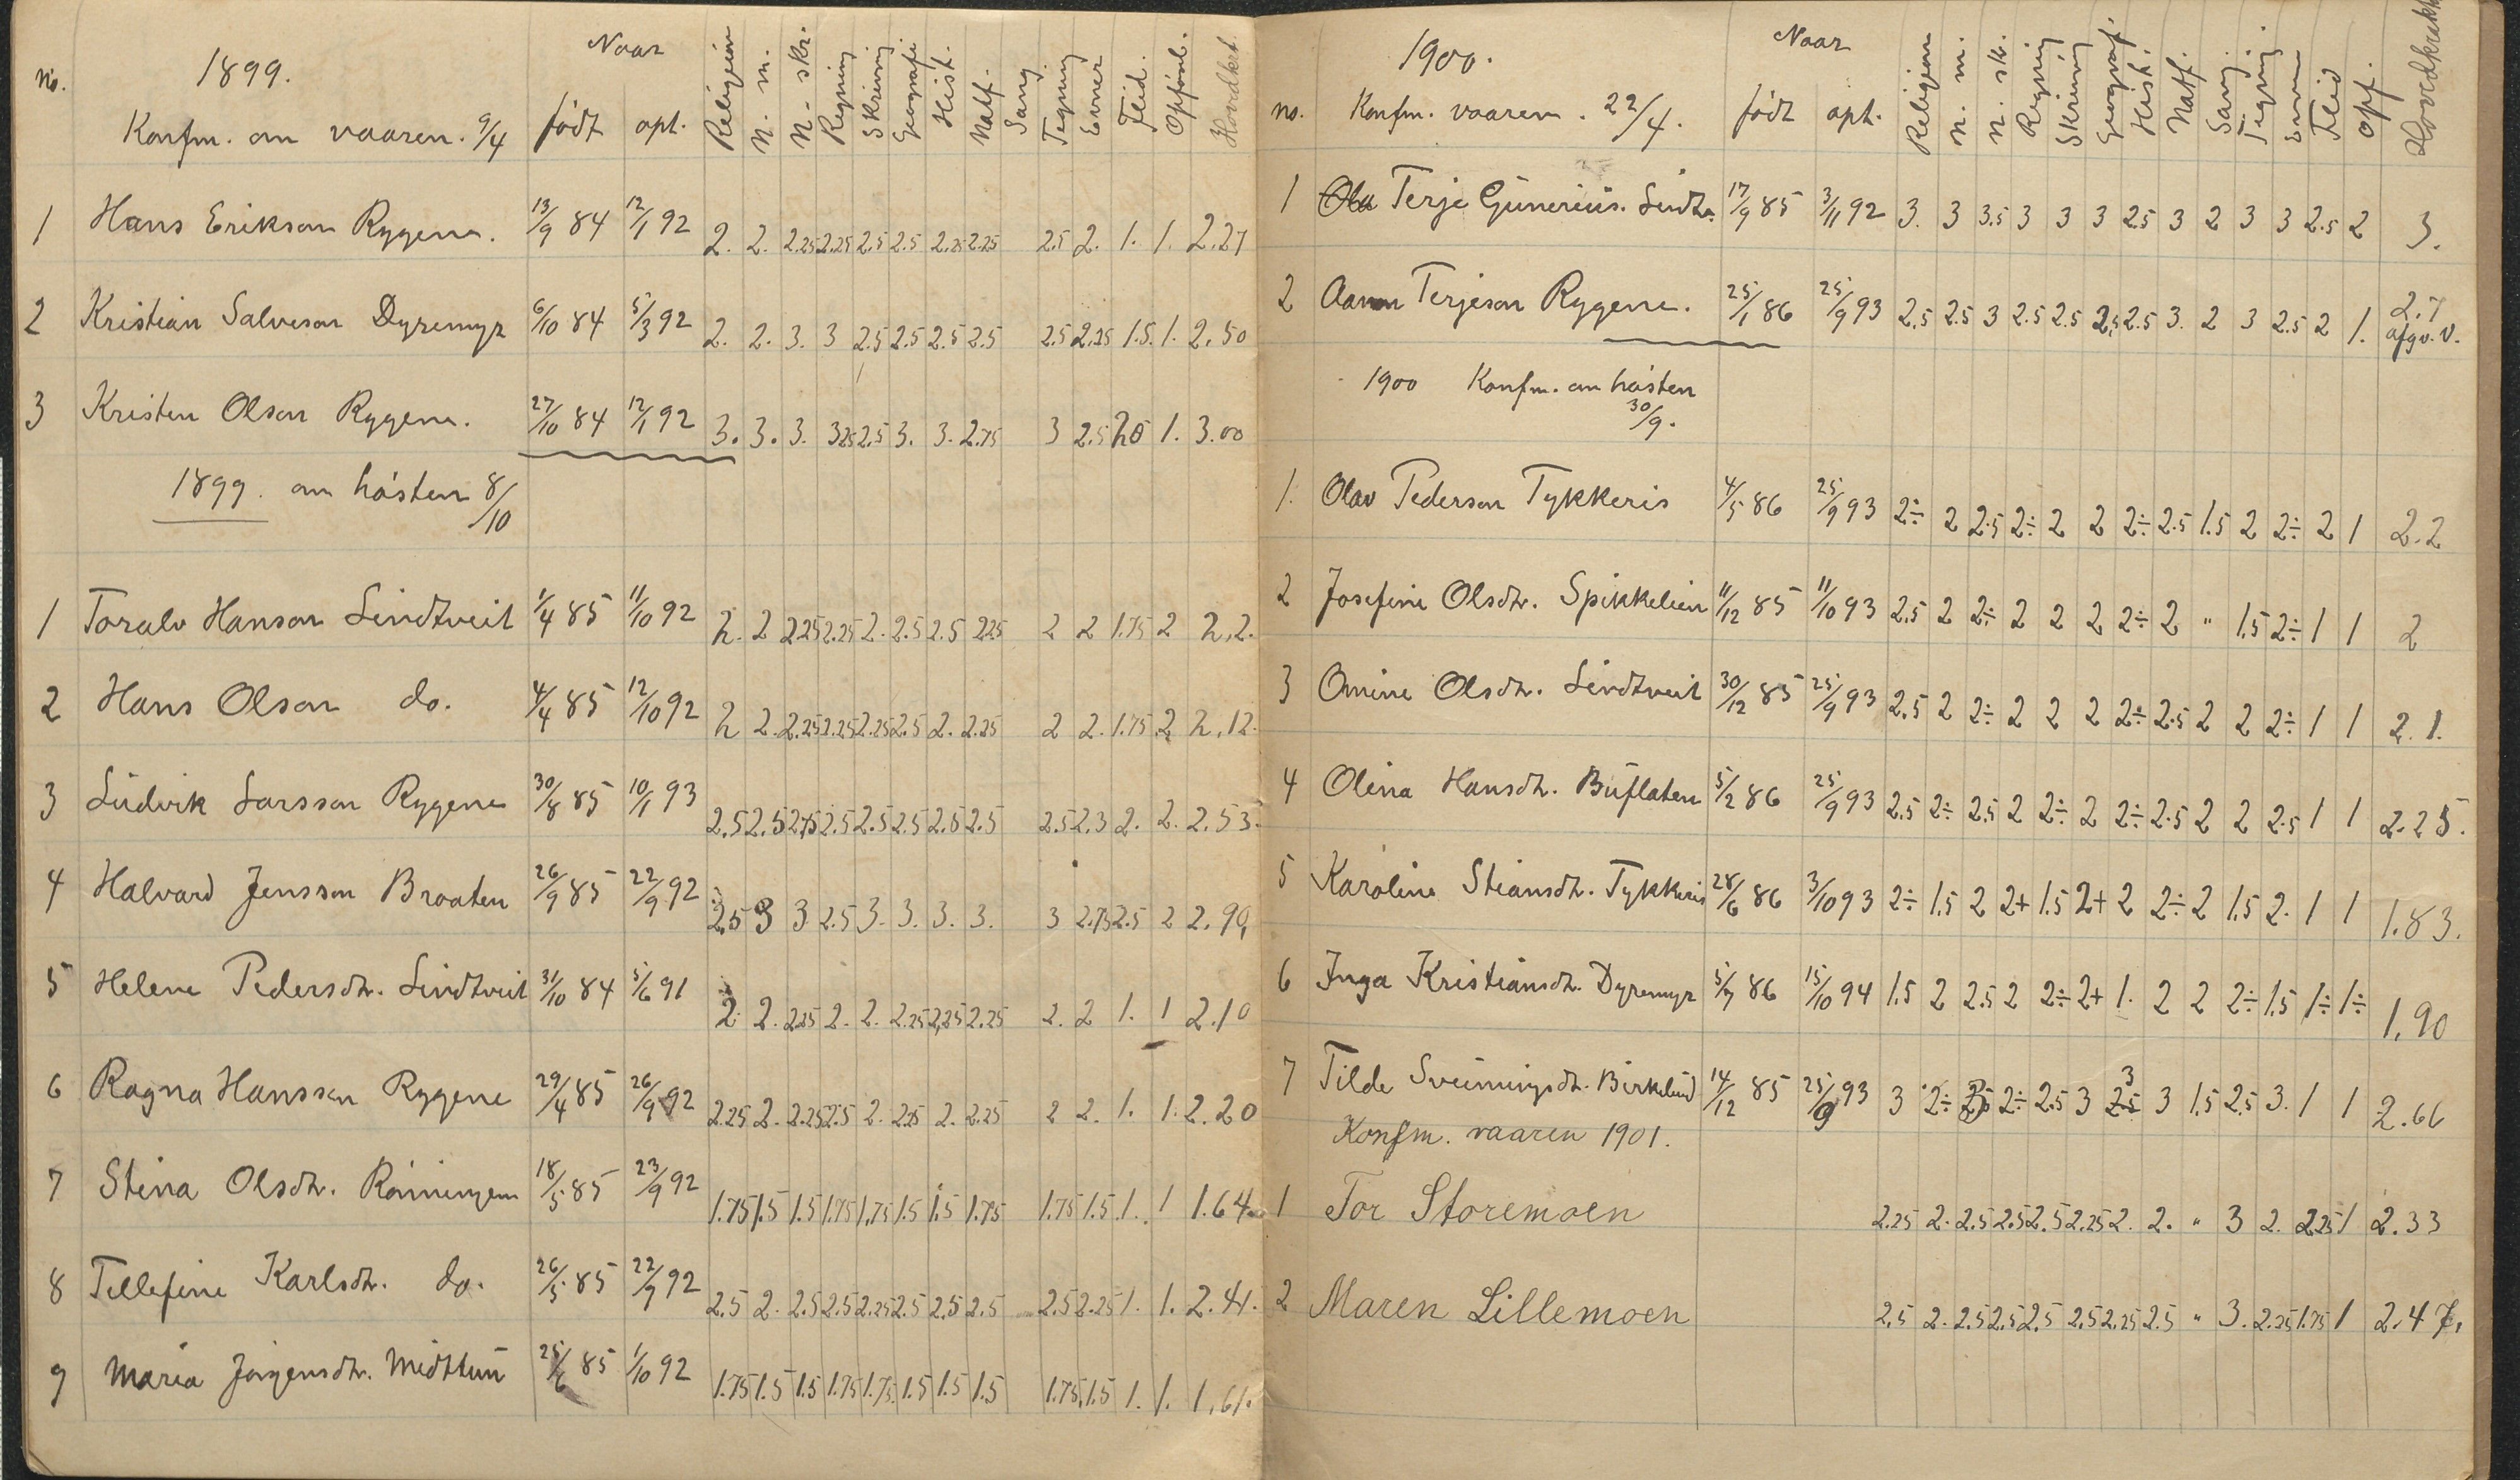 No. 1899. Naar
Konfm. om vaaren. 9/4 født opt. Religion N. m. N. skr. Regning Skrivning Geografi Hist. Natf. Sang Tegning Evner Flid. Opførl. Hovedkrt.
1 Hans Erikson Rygene. 13/9 84 12/1 92 2. 2. 2.25 2.25 2.5 2.5 2.25 2.25 2.5 2. 1. 1. 2.27
2 Kristian Salveson Dyremyr 6/10 84 5/3 92 2. 2. 3. 3 2.5 2.5 2.5 2.5 2.5 2.25 1.5. 1. 2.50
3 Kristen Olson Rygene. 27/10 84 12/1 92 3. 3. 3. 3.25 2.5 3. 3. 2.75 3 2.5 2.5 1. 3.00
1899. om høsten 8/10
1 Toralv Hanson Lindtveit 1/4 85 11/10 92 2. 2 2.25 2.25 2. 2.5 2.5 2.25 2 2 1.75 2 2,2.
2 Hans Olson do. 4/4 85 12/10 92 2 2. 2.25 2.25 2.25 2.5 2. 2.25 2 2. 1.75 2 2,12.
3 Ludvik Larsson Rygene 30/8 85 10/1 93 2.5 2.5 2.75 2.5 2.5 2.5 2.5 2.5 2.5 2.3 2. 2. 2.53.
4 Halvard Jensson Braaten 26/9 85 22/9 92 2.5 3 3 2.5 3. 3. 3. 3. 3 2.75 2.5 2 2.90,
5 Helene Pedersdtr. Lindtveit 31/10 84 5/6 91 2. 2. 2.25 2. 2. 2.25 2,25 2.25 2. 2 1. 1 2.10
6 Ragna Hanssen Rygene 29/4 85 26/9 92 2.25 2. 2.25 2.5 2. 2.25 2. 2.25 2 2. 1. 1. 2.20
7 Stina Olsdtr. Rønningen 18/5 85 23/9 92 1.75 1.5 1.5 1.75 1,75 1.5 1.5 1.75 1.75 1.5 1. 1 1.64.
8 Tellefine Karlsdtr. do. 26/5 85 22/9 92 2.5 2. 2.5 2.5 2.25 2.5 2,5 2.5 2.5 2.25 1. 1. 2.41.
9 Maria Jørgensdtr. Midttun 25/6 85 1/10 92 1.75 1.5 1.5 1.75 1.75. 1.5 1.5 1.5 1.75. 1.5 1. 1. 1,61.
1900. Naar
no. Konfm. vaaren. 22/4. født opt. Religion N. m. N. sk. Regning Skrivning Geograf. Hist. Natf. Sang. Tegning. Evner Flid Opf. Hovedkrakt
1 Terje Gunerius. Lindtv. 17/9 85 3/11 92 3. 3 3.5 3 3 3 2.5 3 2 3 3 2.5 2 3.
2 Aanon Terjeson Rygene. 25/1 86 25/9 93 2.5 2.5 3 2.5 2.5 2,5 2.5 3. 2 3 2.5 2 1. 2.7
afgv. V.
1900 Konfm. om høsten
30/9.
1. Olav Pederson Tykkeris 4/5 86 25/9 93 2÷ 2 2.5 2÷ 2 2 2÷ 2.5 1.5 2 2÷ 2 1 2.2
2 Josefine Olsdtr. Spikkelien 11/12 85 11/10 93 2.5 2 2÷ 2 2 2 2÷ 2 " 1.5 2÷ 1 1 2
3 Omine Olsdtr. Lindtveit 30/12 85 25/9 93 2.5 2 2÷ 2 2 2 2÷ 2.5 2 2 2÷ 1 1 2.1.
4 Olina Hansdtr. Buflaten 5/2 86 25/9 93 2.5 2÷ 2.5 2 2÷ 2 2÷ 2.5 2 2 2.5 1 1 2.25.
5 Karoline Stiansdtr. Tykkeris 28/6 86 3/10 93 2÷ 1.5 2 2+ 1.5 2+ 2 2÷ 2 1.5 2. 1 1 1.83.
6 Inga Kristiansdtr. Dyremyr 5/7 86 15/10 94 1.5 2 2.5 2 2÷ 2+ 1. 2 2 2÷ 1.5 1÷ 1÷ 1.90
7 Tilde Sveinungsdtr. Birkelund 14/12 85 25/9 93 3 2÷ 2÷ 2.5 3 3 3 1.5 2.5 3. 1 1 2.66
Konfm. vaaren 1901.
1 Tor Storemoen 2.25 2. 2.5 2.5 2.5 2.25 2. 2. " 3 2. 2.25 1 2.33
2 Maren Lillemoen 2.5 2. 2.5 2.5 2.5 2.5 2.25 2.5 " 3. 2.25 1.75 1 2.47.